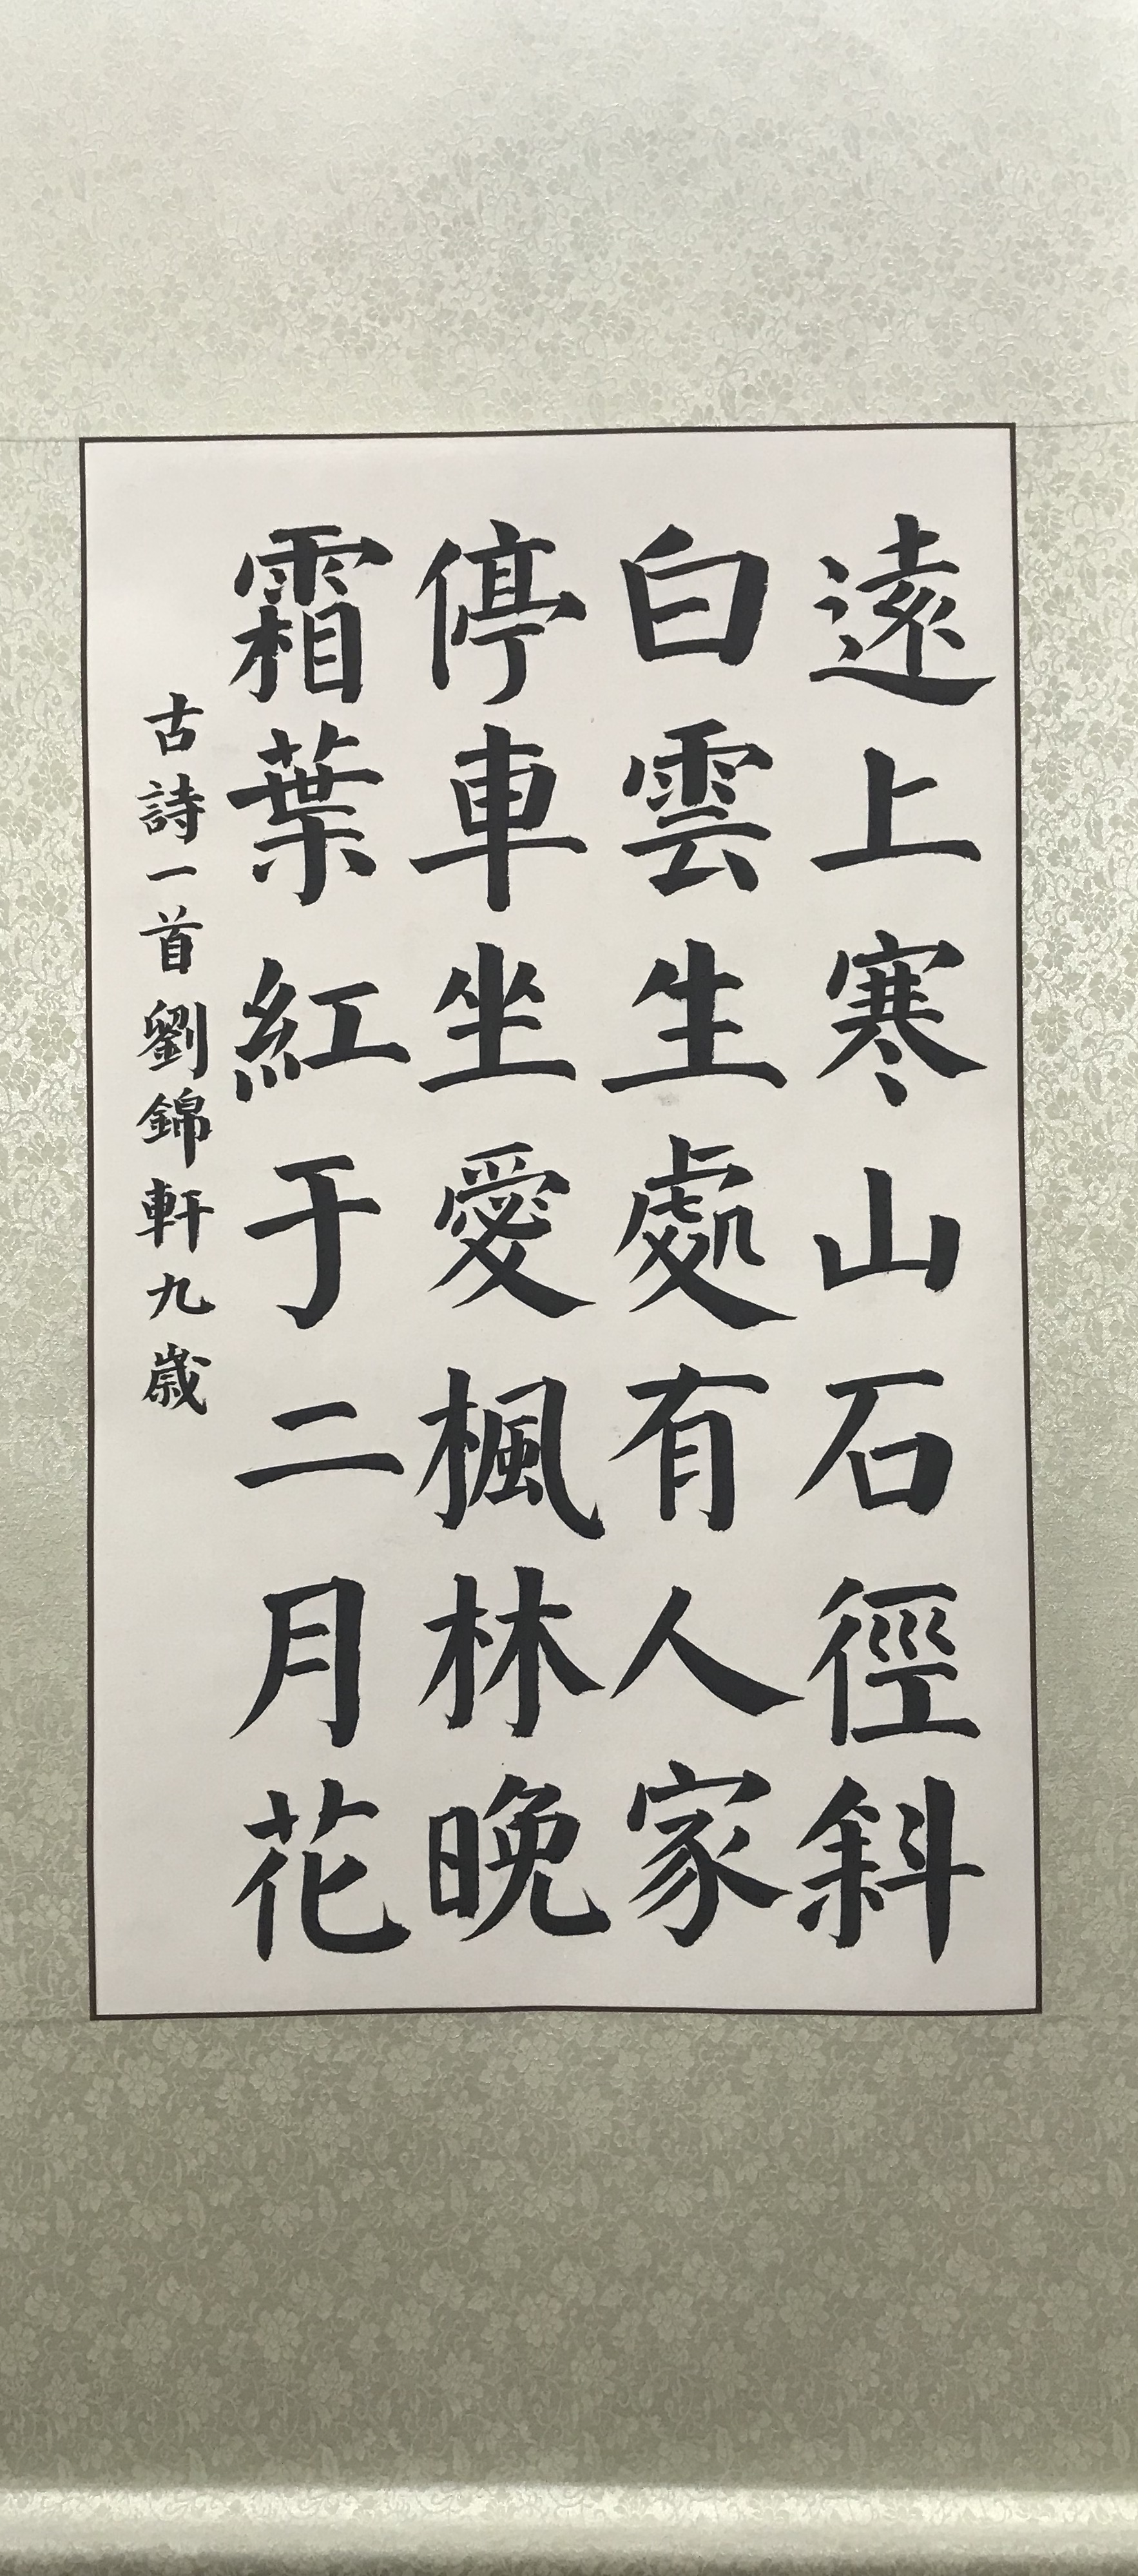 遠上寒山石徑斜
白雲生處有人家
停車坐愛楓林晚
霜葉紅于二月花
古詩一首劉錦軒九歲